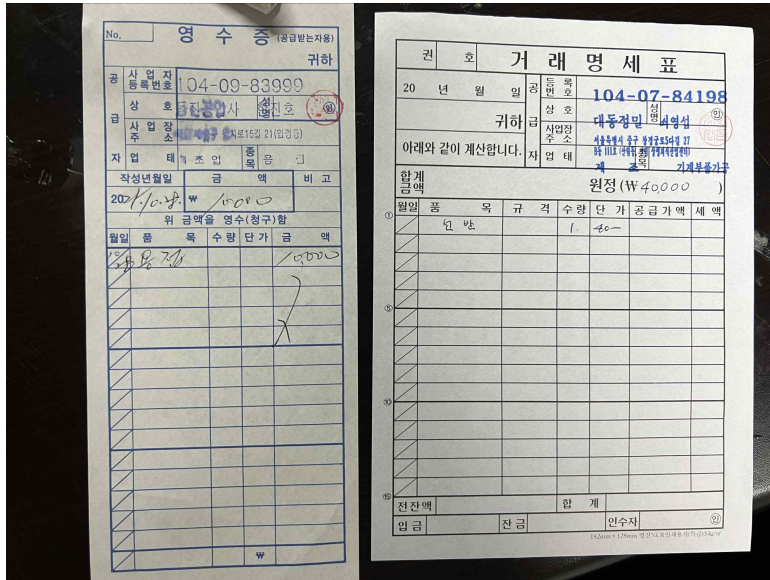 No.
영 수 증 (공급받는자용)
귀하
공 급 자
사업자 등록번호 104-09-83999
상 호 성명 진호 ㊞
사업장 주소 로15길 21
업 태 종목 용
작성년월일 금 액 비 고
202 10.28. ₩ 10000
위 금액을 영수(청구)함
월일 품 목 수량 단가 금 액
용접 10000
₩
권 호 거 래 명 세 표
20 년 월 일
귀하
아래와 같이 계산합니다.
공 급 자
등록번호 104-07-84198
상 호 대동정밀 성명 ㊞
사업장 주소 서울특별시 중구 27
업 태 제 조 종목 기계부품가공
합계 금액 원정 (₩ 40,000 )
월일 품 목 규 격 수량 단 가 공급가액 세 액
① 1. 40-
⑤
⑩
⑮
전잔액 합 계
입금 잔금 인수자 ㊞